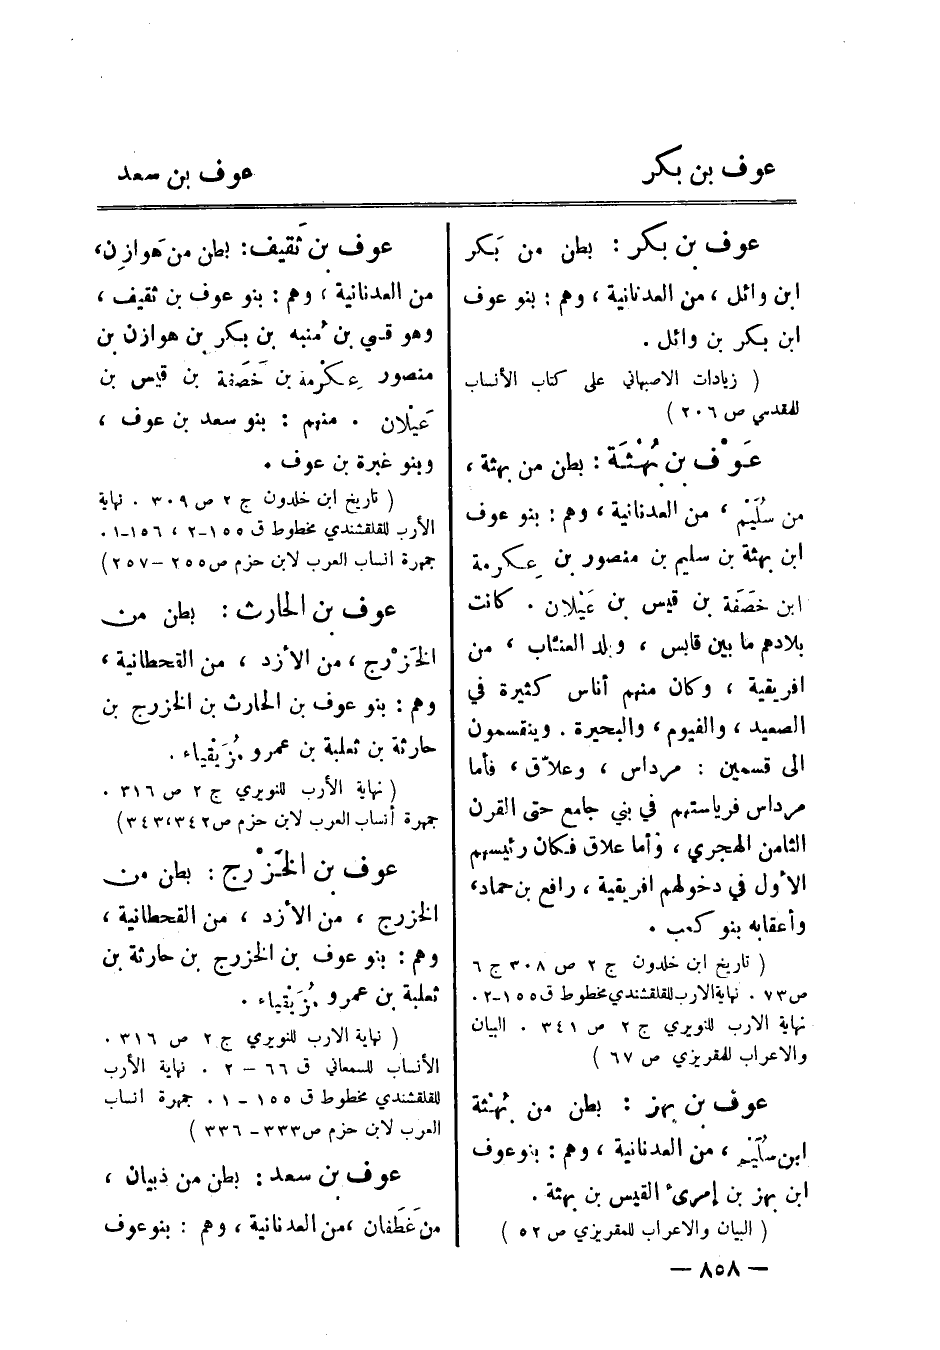 عوف بن بكر
عوف بن سعد
عوف بن بكر : بطن من بَكر
ابن وائل ، من العدنانية ، وهم : بنو عوف
ابن بكر بن وائل .
( زيادات الاصبهاني على كتاب الأنساب
للمقدسي ص ٢٠٦ )
عَوْف بن بُهْثَة : بطن من بهثة ،
من سُلَيْم ، من العدنانية ، وهم : بنو عوف
ابن بهثة بن سليم بن منصور بن عِكرمة
ابن خَصَفة بن قيس بن عَيْلان . كانت
بلادهم ما بين قابس ، وبلد العنّاب ، من
افريقية ، وكان منهم أناس كثيرة في
الصعيد ، والفيوم ، والبحيرة . وينقسمون
الى قسمين : مرداس ، وعلاّق ، فأما
مرداس فرياستهم في بني جامع حتى القرن
الثامن الهجري ، وأما علاق فكان رئيسهم
الأول في دخولهم افريقية ، رافع بن حماد ،
وأعقابه بنو كعب .
( تاريخ ابن خلدون ج ٢ ص ٣٠٨ ج ٦
ص ٧٣ . نهاية الارب للقلقشندي مخطوط ق ١٥٥-٢ .
نهاية الارب للنويري ج ٢ ص ٣٤١ . البيان
والاعراب للمقريزي ص ٦٧ )
عوف بن بهز : بطن من بُهْثة
ابن سُلَيْم ، من العدنانية ، وهم : بنو عوف
ابن بهز بن إمرىء القيس بن بهثة .
( البيان والاعراب للمقريزي ص ٥٢ )
عوف بن ثَقيف : بطن من هَوازِن ،
من العدنانية ، وهم : بنو عوف بن ثقيف ،
وهو قسي بن مُنبه بن بكر بن هوازن بن
منصور عِكْرمة بن خَصَفة بن قيس بن
عَيْلان . منهم : بنو سعد بن عوف ،
وبنو غبرة بن عوف .
( تاريخ ابن خلدون ج ٢ ص ٣٠٩ . نهاية
الأرب للقلقشندي مخطوط ق ١٥٥-٢ ، ١٥٦-١ .
جمهرة انساب العرب لابن حزم ص ٢٥٥ - ٢٥٧ )
عوف بن الحارث : بطن من
الخَزْرج ، من الأزد ، من القحطانية ،
وهم : بنو عوف بن الحارث بن الخزرج بن
حارثة بن ثعلبة بن عمرو مُزَيْقياء .
( نهاية الأرب للنويري ج ٢ ص ٣١٦ .
جمهرة أنساب العرب لابن حزم ص ٣٤٢ ، ٣٤٣ )
عوف بن الخَزْرج : بطن من
الخزرج ، من الأزد ، من القحطانية ،
وهم : بنو عوف بن الخزرج بن حارثة بن
ثعلبة بن عمرو مُزَيْقياء .
( نهاية الارب للنويري ج ٢ ص ٣١٦ .
الأنساب للسمعاني ق ٦٦ - ٢ . نهاية الأرب
للقلقشندي مخطوط ق ١٥٥ - ١ . جمهرة انساب
العرب لابن حزم ص ٣٣٣ - ٣٣٦ )
عوف بن سعد : بطن من ذبيان ،
من غَطَفان ، من العدنانية ، وهم : بنو عوف
— ٨٥٨ —